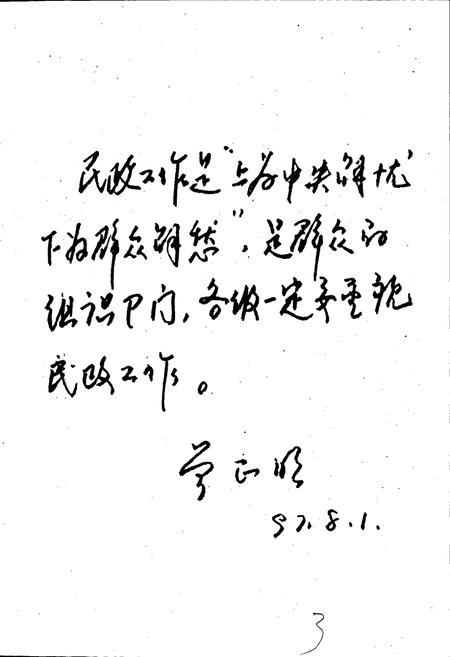 民政工作是“上为中央解忧
下为群众解愁”，是群众的
组识卩门，各级一定要重视
民政工作。
曾正明
97.8.1.
3